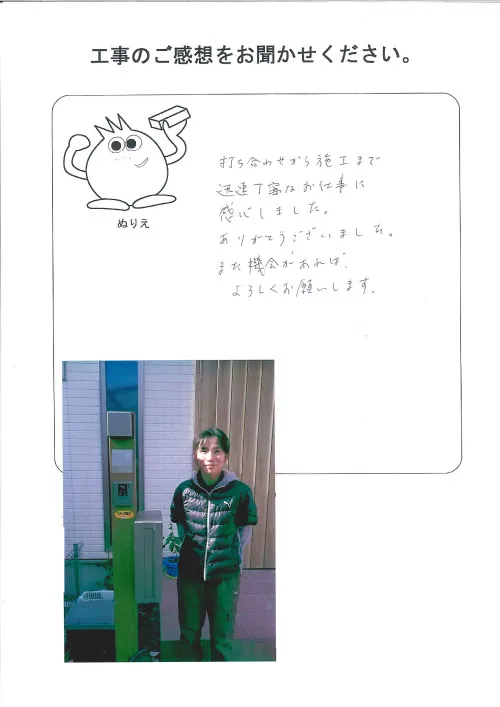 工事のご感想をお聞かせください。
ぬりえ
打ち合わせから施工まで
迅速丁寧なお仕事に
感心しました。
ありがとうございました。
また機会があれば、
よろしくお願いします。